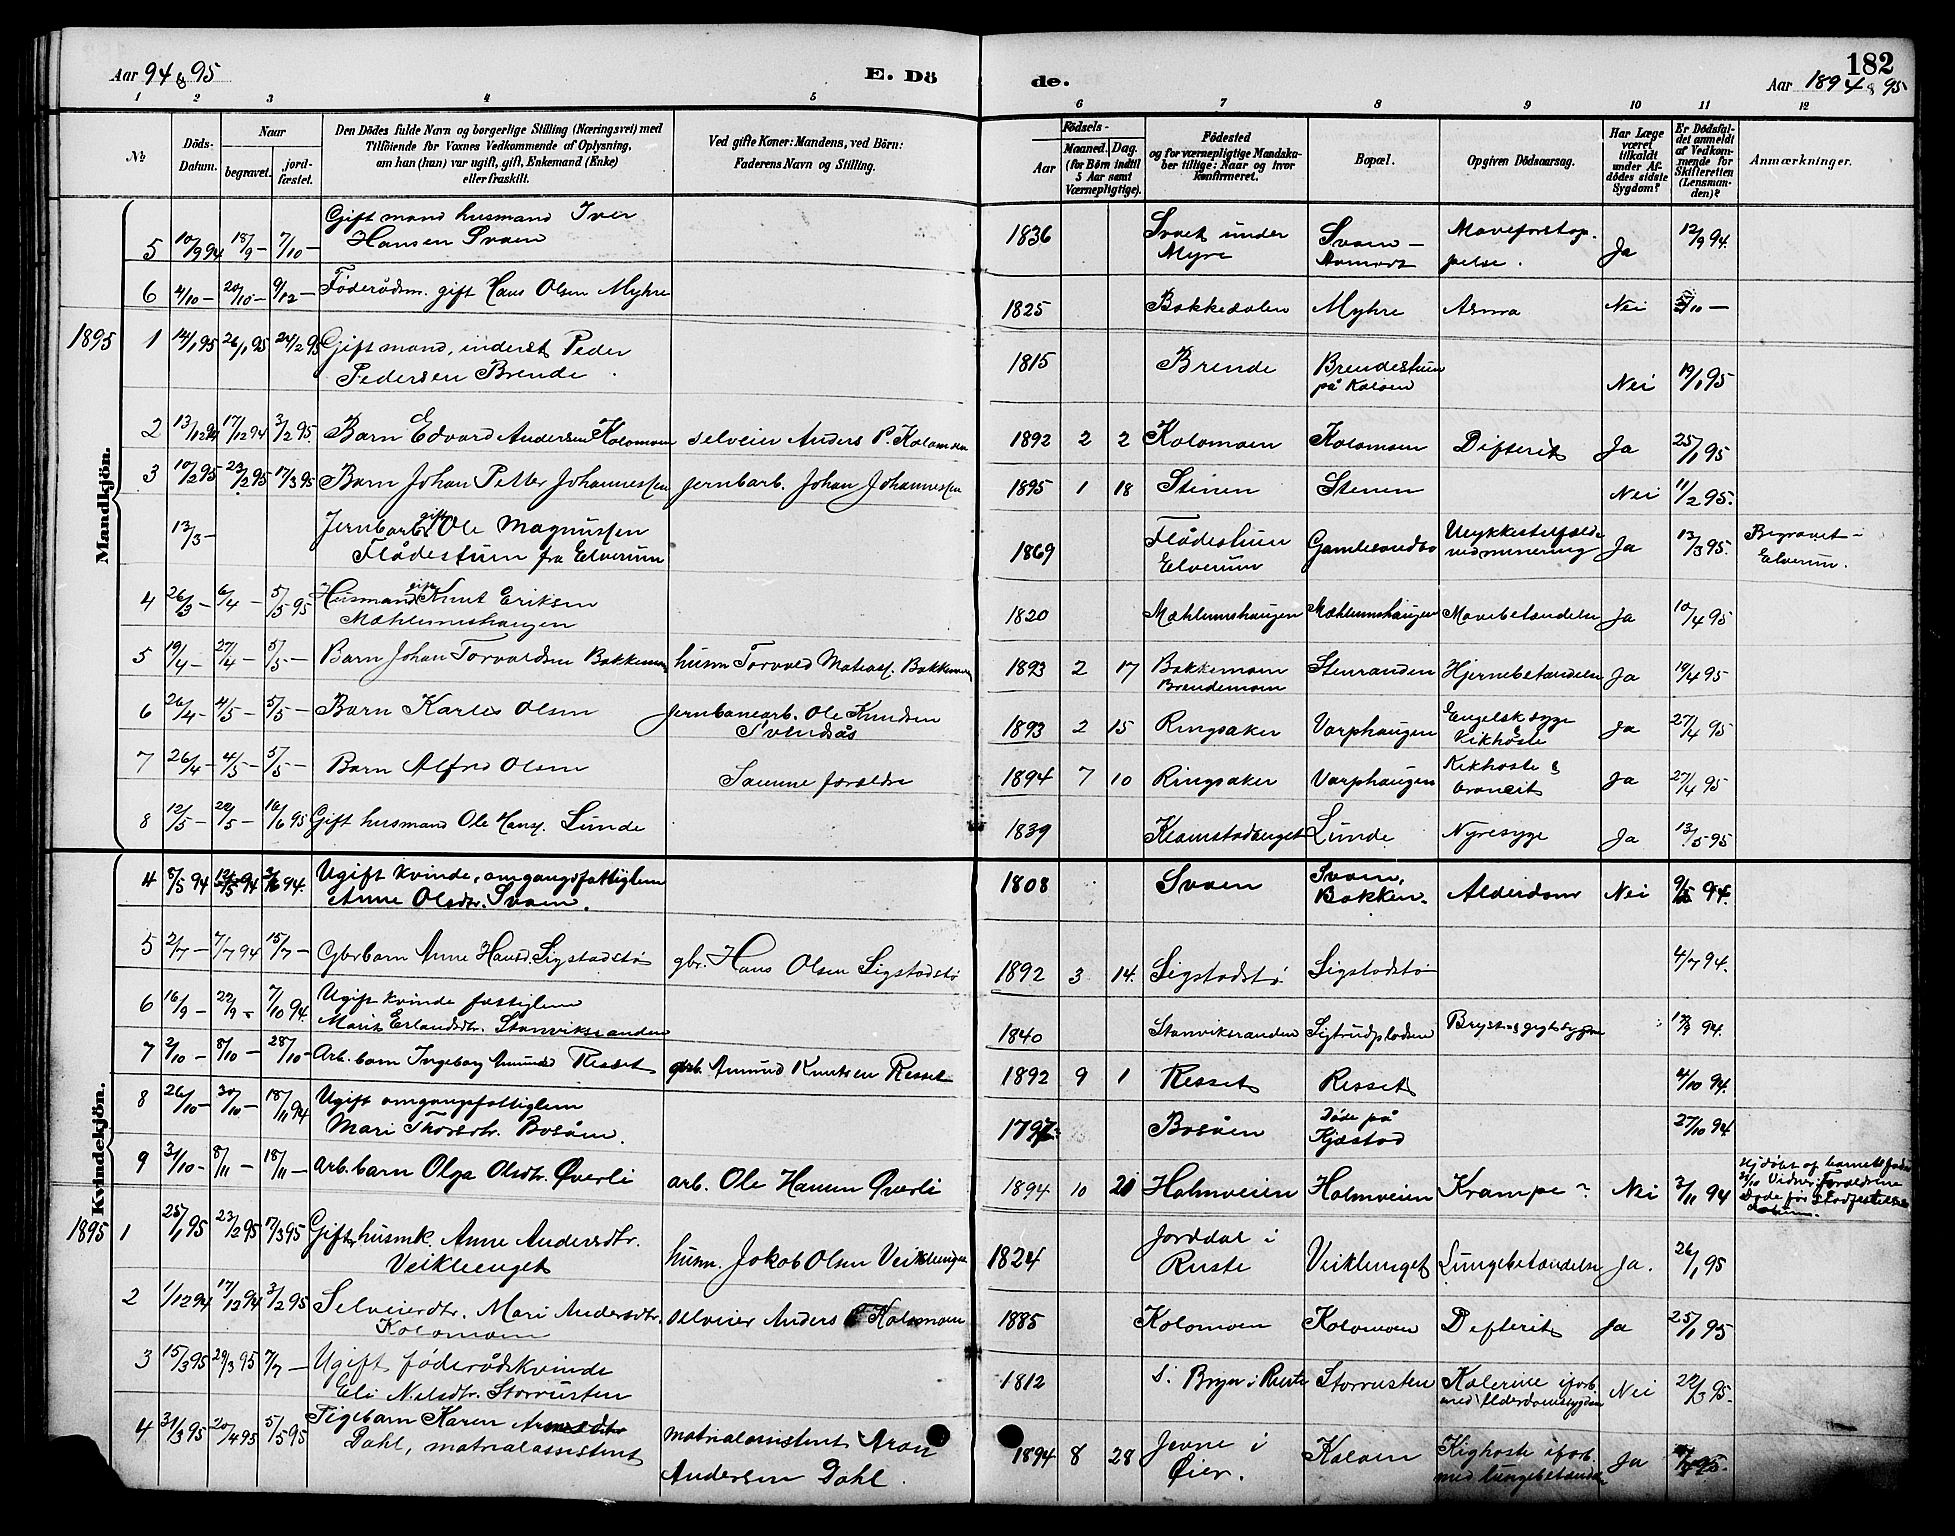 Aar 94 & 95
E. Dö
de.
182
Aar 1894 & 95
1 2 3 4 5 6 7 8 9 10 11 12
No
Döds-Datum.
Naar
begravet.
jord-fæstet.
Den Dödes fulde Navn og borgerlige Stilling (Næringsvei) med
Tilföiende for Voxnes Vedkommende af Oplysning,
om han (hun) var ugift, gift, Enkemand (Enke)
eller fraskilt.
Ved gifte Koner: Mandens, ved Börn:
Faderens Navn og Stilling.
Aar
Födsels-
Maaned. Dag.
(for Börn indtil
5 Aar samt
Værnepligtige).
Födested
og for værnepligtige Mandska-
ber tillige: Naar og hvor
konfirmeret.
Bopæl.
Opgiven Dödsaarsag.
Har Læge
været
tilkaldt
under Af-
dödes sidste
Sygdom?
Er Dödsfal-
det anmeldt
af Vedkom-
mende for
Skifteretten
(Lensman-
den)?
Anmærkninger.
Mandkjön.
5 10/9 94 18/9 – 7/10 – Gift mand husmand Iver
Hansen Svaen 1836 Svaet under
Myre Svaen – Moveforstop-
pelse. Ja 12/9 94.
6 4/10 – 20/10 – 9/12 – Föderådsm. gift Hans Olsen Myhre 1825 Bakkedalen Myhre Asma Nei 5/10 –
1895 1 14/1 95 26/1 95 24/2 95 Gift mand, inderst Peder
Pedersen Brende. 1815 Brende Brendestuen
på Kaloen Nei 19/1 95
2 13/12 94 17/12 94 3/2 95. Barn Edvard Andersen Kolomoen selveier Anders P. Kolomoen 1892 2 2 Kolomoen Kolomoen Difterit Ja 25/1 95
3 10/2 95 23/2 95 17/3 95 Barn Johan Petter Johannessen jernbarb. Johan Johannessen 1895 1 18 Stenen Stenen Nei 11/2 95.
13/3 – Jernbarb. gift Ole Magnussen
Flådestuen fra Elverum 1869 Flådestuen
Elverum Gamlesandbo Ulykkestilfælde
ved minering Ja 13/3 95. Begravet –
Elverum.
4 26/3 – 6/4 – 5/5 95 Husmand gift Knut Eriksen
Mæhlumshaugen 1820 Mæhlumshaugen Mæhlumshaugen Mavebetændelse Ja 10/4 95
5 19/4 – 27/4 – 5/5 – Barn Johan Torvaldsen Bakkemoen husm Torvald Matiass. Bakkemoen 1893 2 17 Bakkemoen
Brendemoen Stenranden Hjernebetændelse Ja 19/4 95
6 26/4 – 4/5 – 5/5 – Barn Karles Olsen jernbanearb. Ole Knudsen
Svendsås 1893 2 15 Ringsaker Varphaugen Engelsk syge
& Kikhoste Ja 27/4 95
7 26/4 – 4/5 – 5/5 – Barn Alfred Olsen Samme foreldre 1894 7 10 Ringsaker Varphaugen Kikhoste &
bronkit Ja 27/4 95
8 12/5 – 20/5 – 16/6 95 Gift husmand Ole Hans. Lunde 1839 Klomstadenget Lunde Nyresyge Ja 13/5 95
Kvindekjön.
4 8/5 94 12/5 94 94. Ugift kvinde, omgangsfattiglem
Anne Olsdtr. Svaen. 1808 Svaen Svaen,
Bakken. Alderdom Nei 94.
5 2/7 – 7/7 94 15/7 – Gbrbarn Anne Hansd. Sigstadstø gbr. Hans Olsen Sigstadstø 1892 3 14. Sigstadstø Sigstadstø 4/7 94.
6 16/9 – 22/9 – 7/10 94. Ugift kvinde fattiglem
Marit Erlandsdtr. Stanviksranden 1840 Stanviksranden Sigtrudpladsen Bryst og gigtsygdom 94.
7 2/10 – 8/10 – 28/10 – Arb. barn Ingeborg Amundsd Resset Amund Knutsen Resset 1892 9 1 Resset Resset 4/10 94.
8 26/10 – 30/10 – 18/11 94 Ugift omgangsfattiglem
Mari Thorsdtr. Bosåen. 1797 Bosåen Døde på
Kjæstad 27/10 94
9 31/10 – 8/11 – 18/11 – Arb. barn Olga Olsdtr. Øverli arb. Ole Hansen Øverli 1894 10 20 Holmveien Holmveien Krampe? Nei 3/11 94 Hj. døbt af barnets fader
Vidner: Forældrene
Døde før Stadfæstelse
1895 1 25/1 95 23/2 95 7/3 95 Gift husmk. Anne Andersdtr.
Veiklenget husm. Jakob Olsen Veiklenget 1824 Jorddal i
Ruste Veiklenget Lungebetændelse Ja. 26/1 95
2 1/12 94 17/12 94 3/2 95 Selveierdtr. Mari Andersdtr.
Kolomoen selveier Anders P Kolomoen 1885 Kolomoen Kolomoen Difterit Ja 25/1 95
3 15/3 95 29/3 95 7/7 – Ugift föderådskvinde
Eli Nilsdtr. Storrusten 1812 S. Bryn i Ruste Storrusten Kolerine iforb.
med Alderdomssygdom Nei 22/3 95.
4 31/3 95 20/4 95 5/5 95 Pigebarn Karen
Dahl, matrialassistent matrialassistent Aron
Andersen Dahl. 1894 8 28 Jevne i
Øier. Kaloen Kighoste iforb.
med lungebetændelse Ja 95.